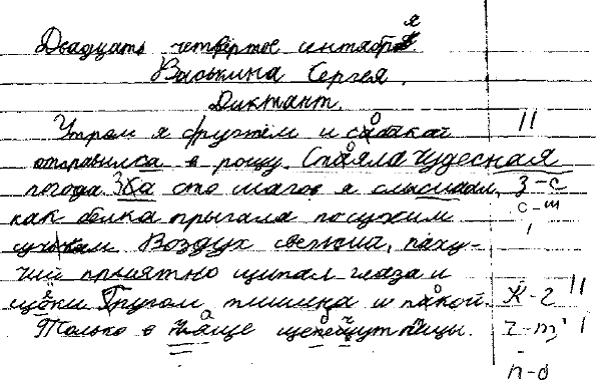 Двадцать четвёртое сентября.
Васькина Сергея.
Диктант.
Утром я с другтём и сабакат
отправилса в рощу. Стаяла чудесная
погода. За сто шагов я слысшал,
как белка прыгала по сухим
сучькам. Воздух свежий, паху-
чий приятно щипал глаза и
щёки. Кругом тишина и пакой.
Только в чаще щебечут птицы.
11
З-с
с-ш
1
К-г 11
г-т 1
п-д